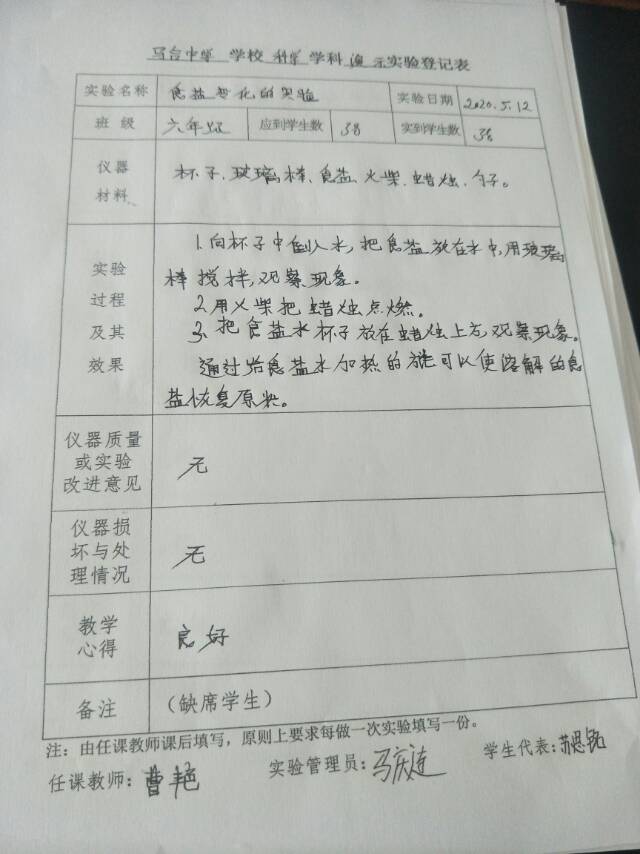 马台中学 学校 科学 学科 演 示实验登记表
实验名称 食盐变化的实验 实验日期 2020.5.12
班 级 六年级 应到学生数 38 实到学生数 38
仪器
材料
杯子、玻璃棒、食盐、火柴、蜡烛、勺子。
实验
过程
及其
效果
1.向杯子中倒入水,把食盐放在水中,用玻璃
棒搅拌,观察现象。
2.用火柴把蜡烛点燃。
3.把食盐水杯子放在蜡烛上方,观察现象。
通过给食盐水加热的方法可以使溶解的食
盐恢复原来。
仪器质量
或实验
改进意见
无
仪器损
坏与处
理情况
无
教学
心得
良好
备注 (缺席学生)
注:由任课教师课后填写,原则上要求每做一次实验填写一份。
任课教师:曹艳 实验管理员:马庆连 学生代表:苏思铭